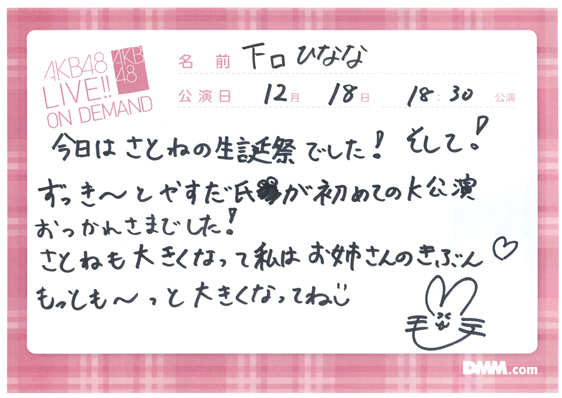 AKB48
LIVE!!
ON DEMAND
AKB
48
名前 下口ひなな
公演日 12月 18日 18:30 公演
今日はさとねの生誕祭でした! そして!
ずっき〜とやすだ氏が初めてのK公演
おっかれさまでした!
さとねも大きくなって私はお姉さんのきぶん♡
もっとも〜っと大きくなってね
DMM.com